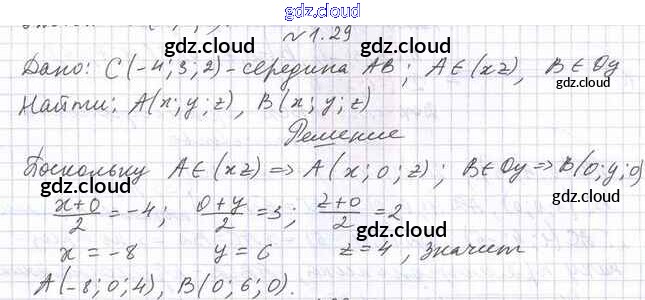 gdz.cloud
№1.29
gdz.cloud gdz.cloud
Дано: C(-4; 3; 2) - середина AB; A∈(xz), B∈Oy
gdz.cloud
Найти: A(x; y; z), B(x; y; z)
Решение
Поскольку A∈(xz) => A(x; 0; z); B∈Oy => B(0; y; 0)
gdz.cloud gdz.cloud gdz.cloud
(x+0)/2 = -4; (0+y)/2 = 3; (z+0)/2 = 2
gdz.cloud
x = -8 y = 6 z = 4, значит
gdz.cloud gdz.cloud
A(-8; 0; 4), B(0; 6; 0).